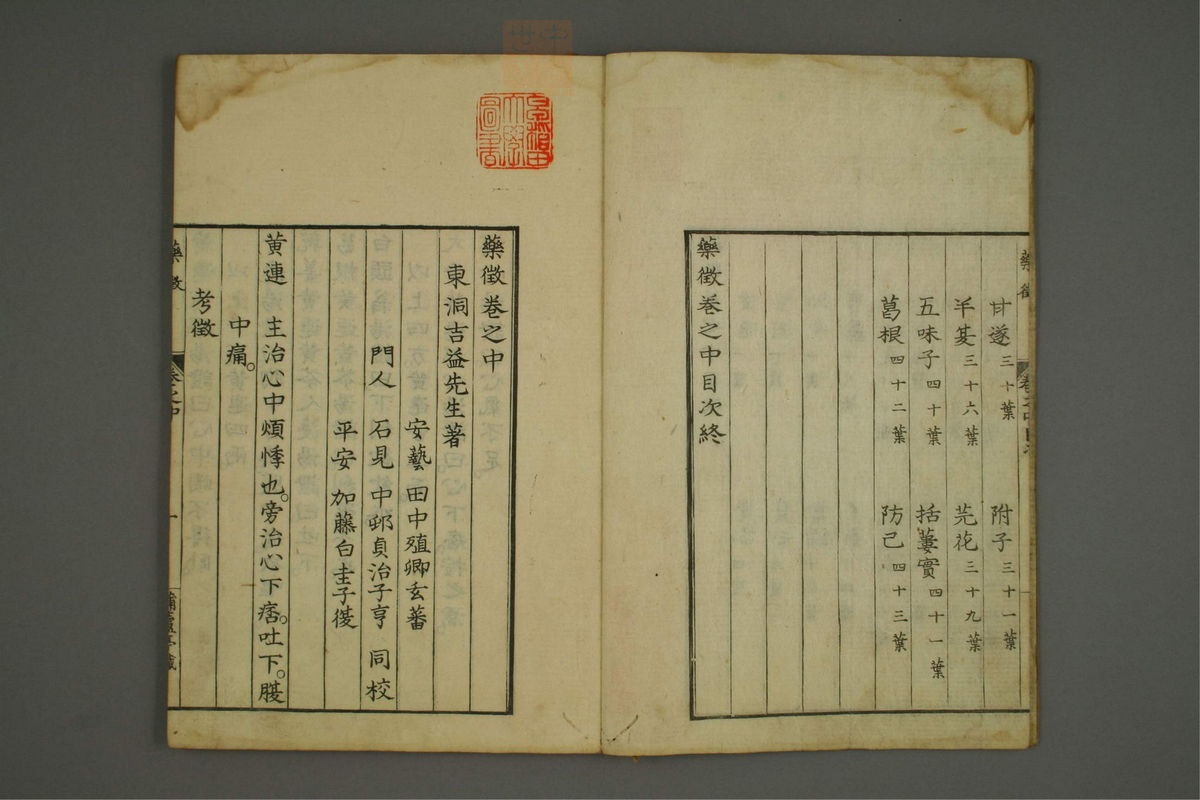 甘遂三十葉 附子三十一葉
半夏三十六葉 芫花三十九葉
五味子四十葉 括蔞實四十一葉
葛根四十二葉 防己四十三葉
藥徵卷之中目次終
早稲田大學圖書
藥徵卷之中
東洞吉益先生著
安藝 田中殖卿玄蕃
門人 石見 中邨貞治子亨 同校
平安 加藤白圭子復
黃連 主治心中煩悸也。旁治心下痞。吐下。腹
中痛。
考徵
藥徵